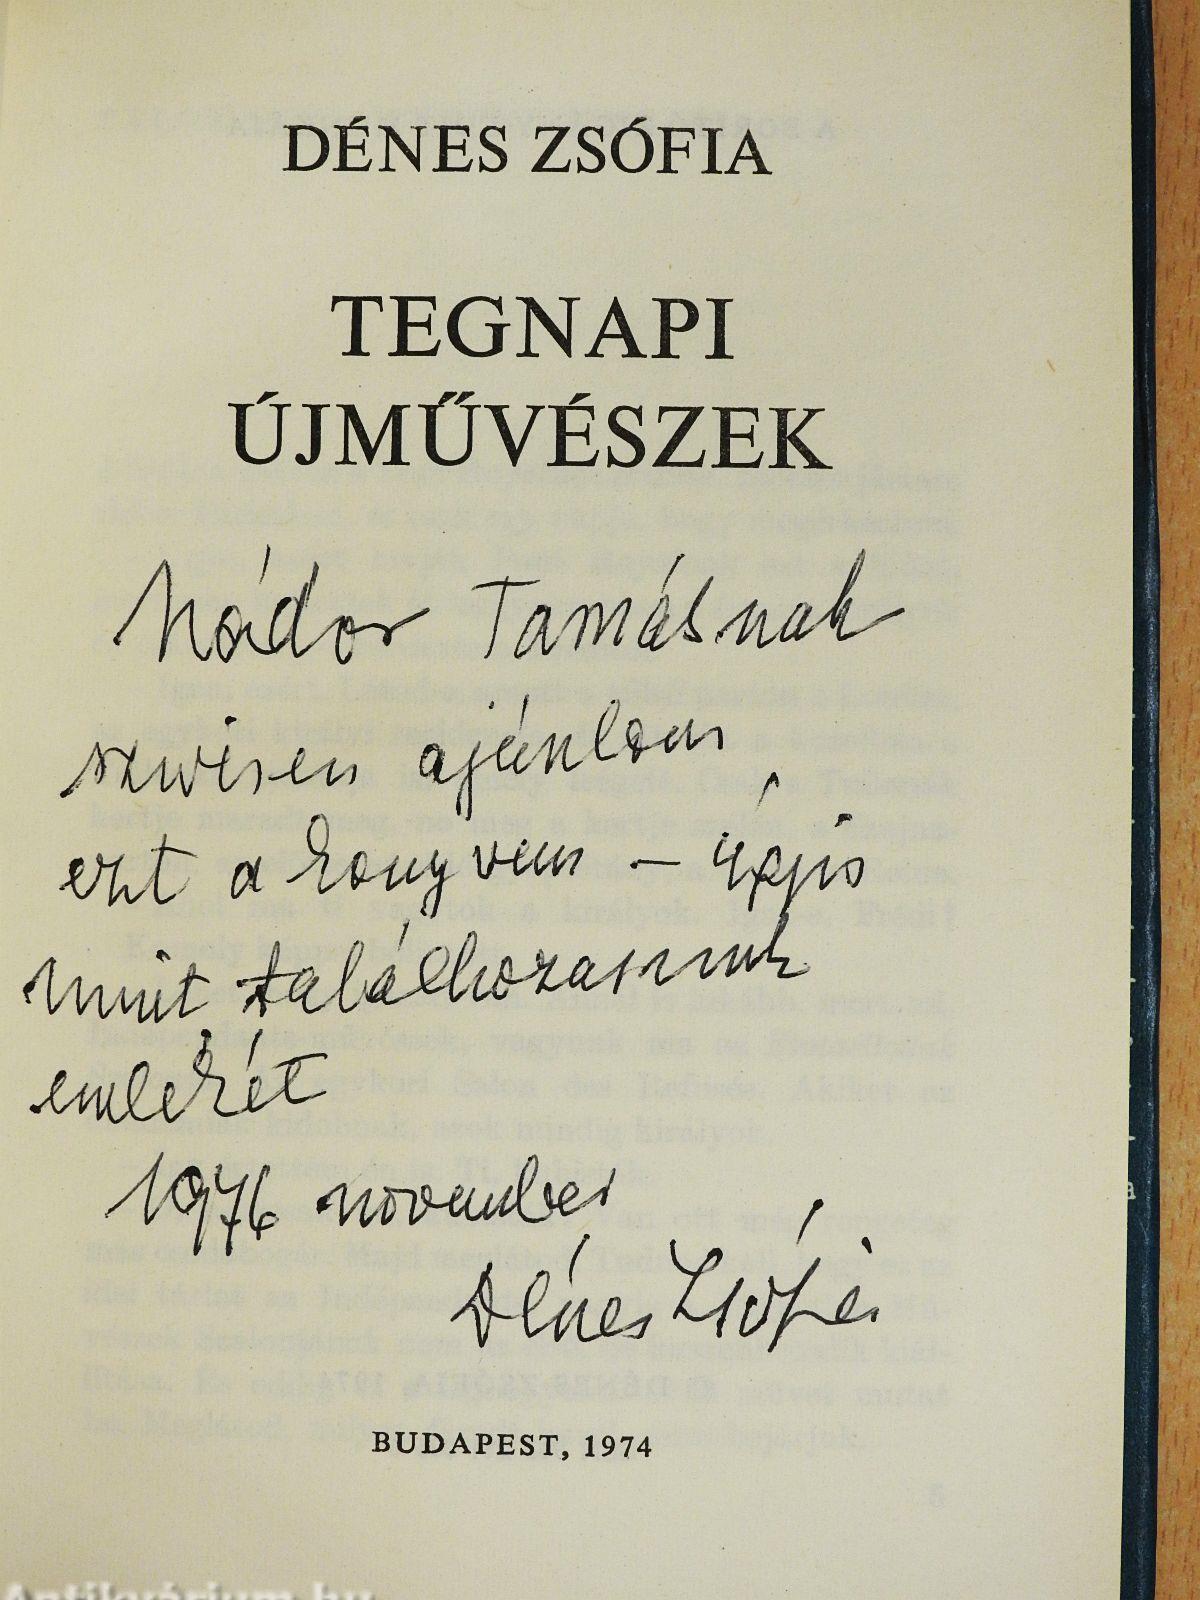 DÉNES ZSÓFIA
TEGNAPI
ÚJMŰVÉSZEK
Nádor Tamásnak
szivesen ajánlom
ezt a könyvem –
mint találkozasunk
emlékét
1976 november
Dénes Zsófia
BUDAPEST, 1974
Antikvárium.hu